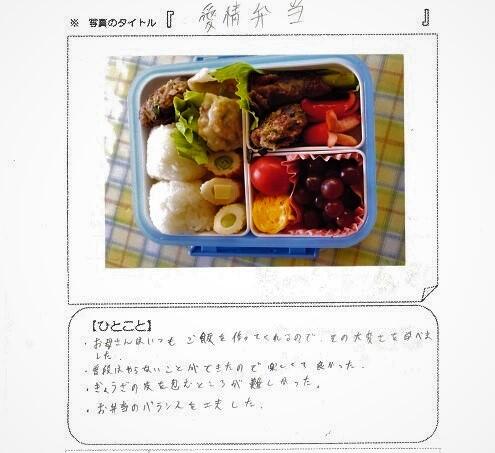 ※ 写真のタイトル 『 愛情弁当 』
【ひとこと】
・お母さんはいつも ご飯を作ってくれるので、その大変さを学べま
した。
・普段はやらないことができたので楽しくて良かった。
・ぎょうざの皮を包むところが難しかった。
・お弁当のバランスを工夫した。